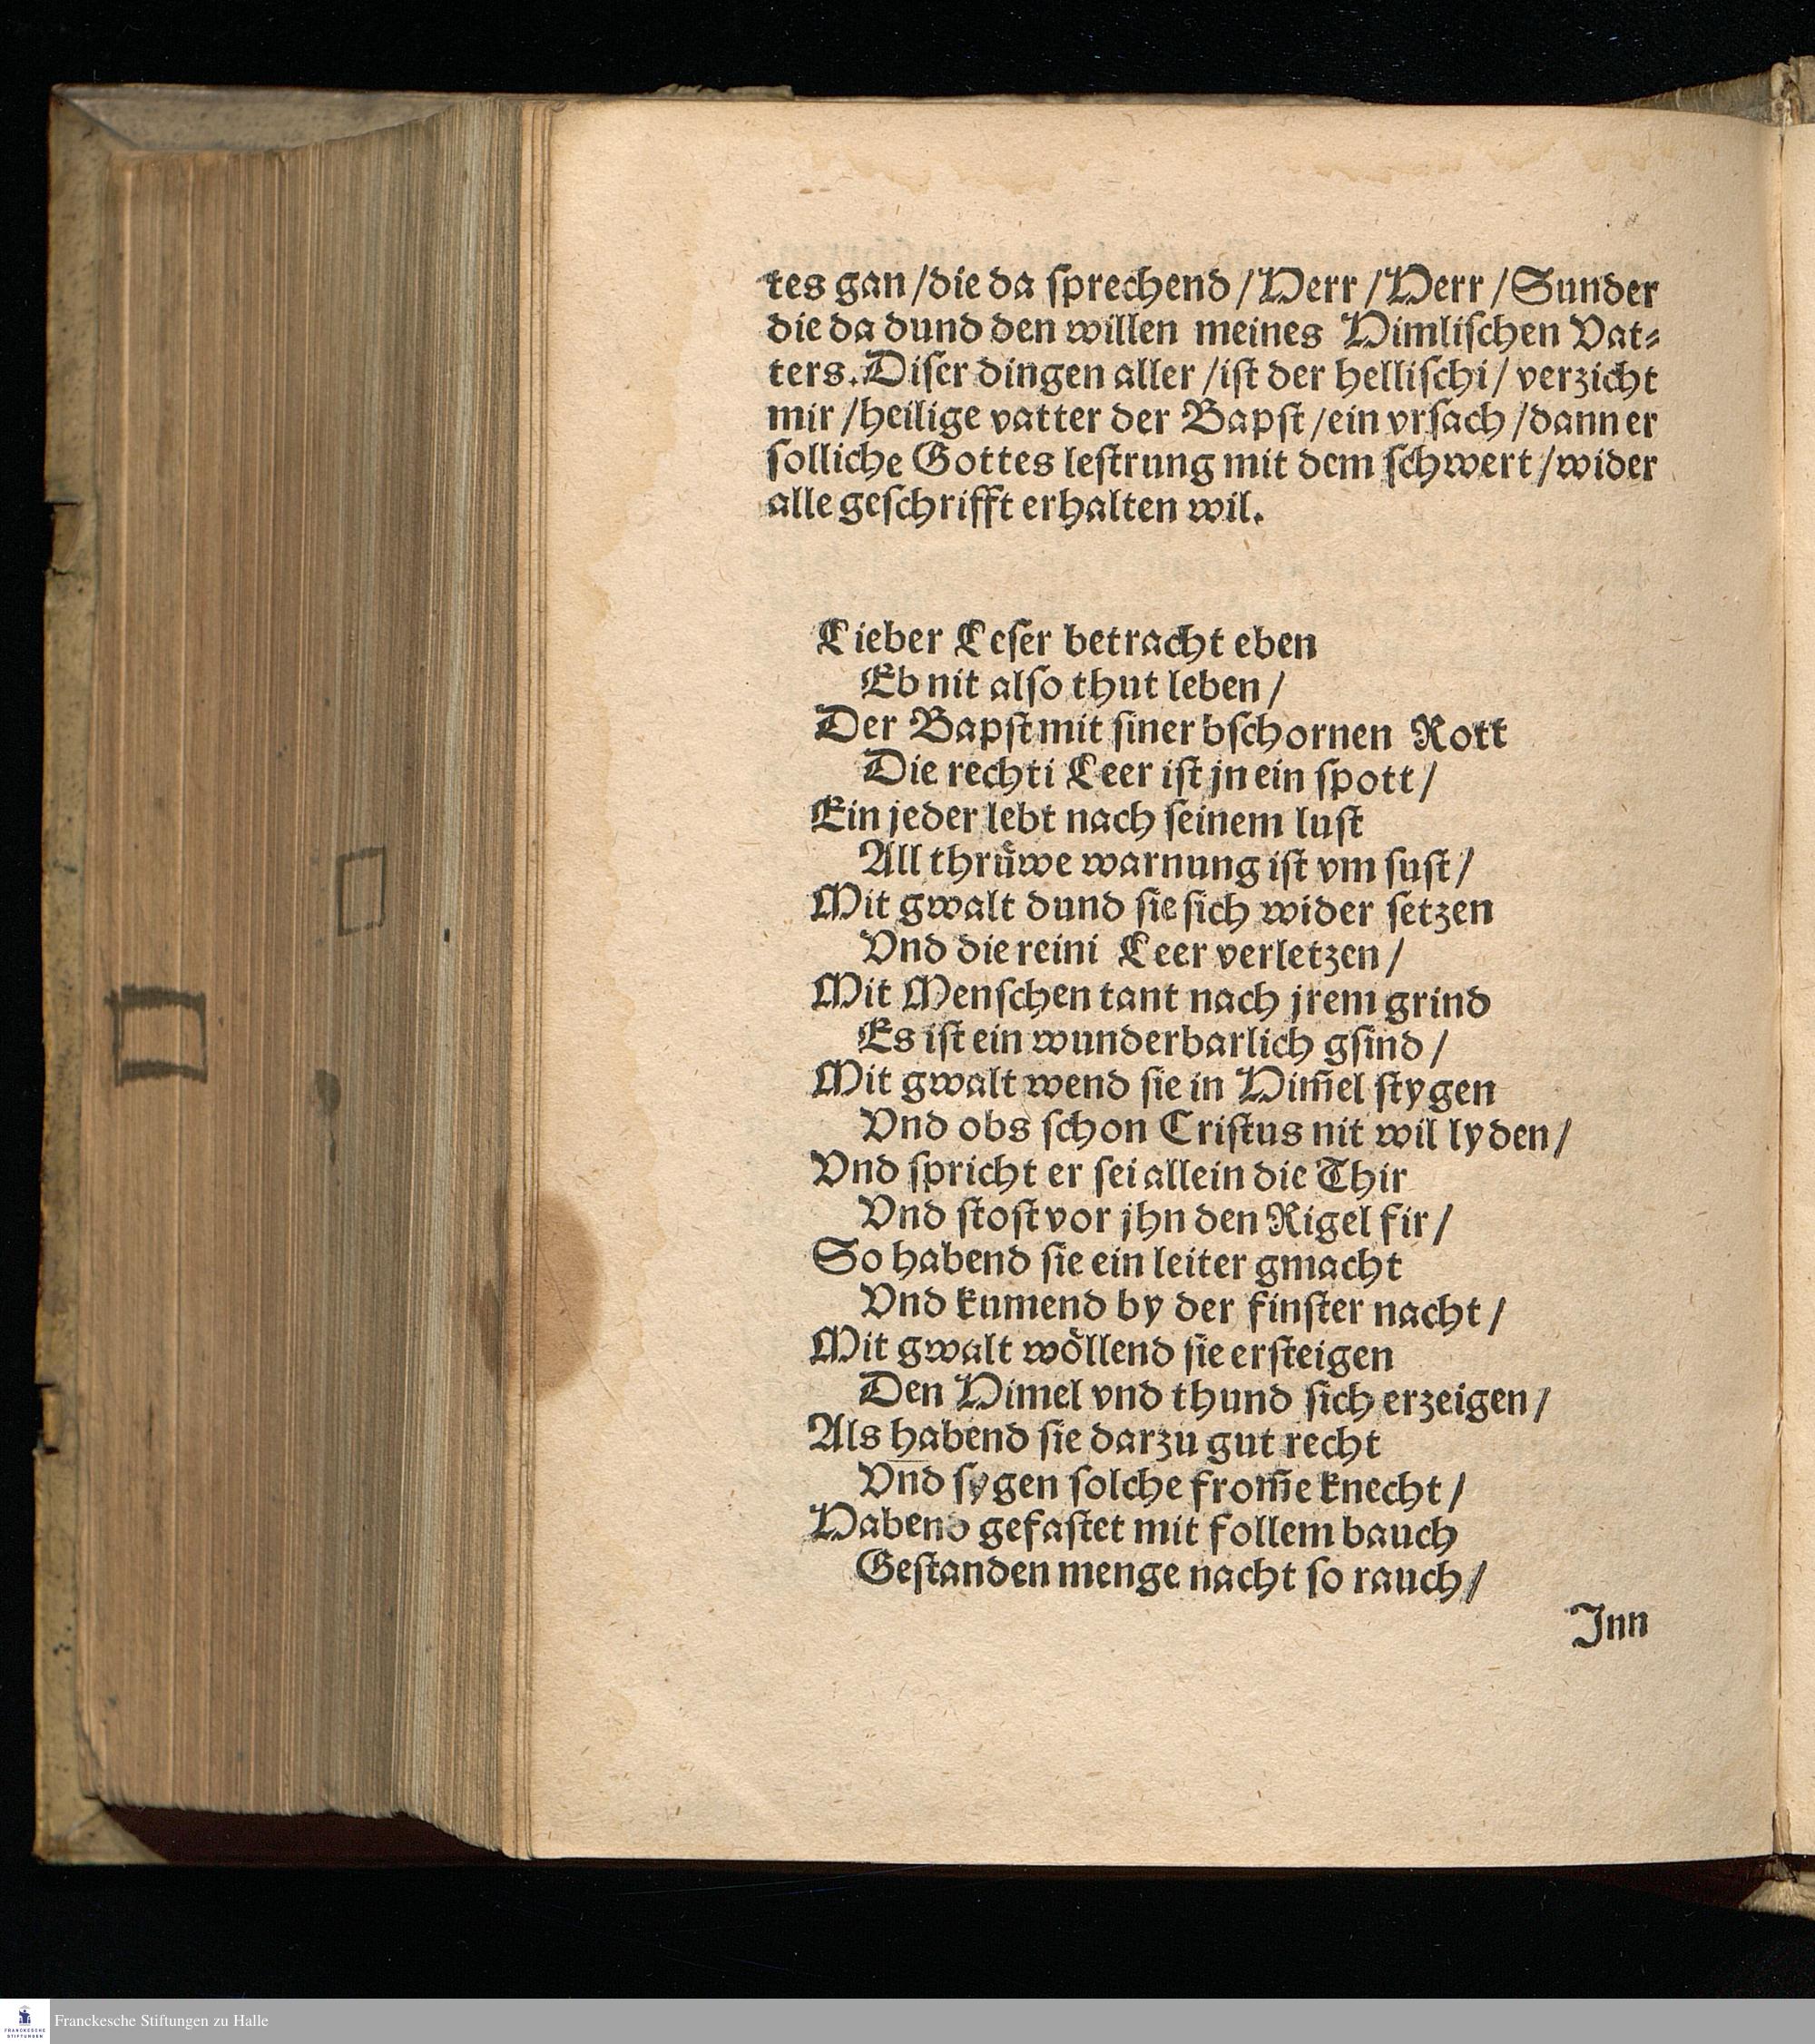 tes gan /die da ſprechend / Herr / Herr / Sunder
die da dund den willen meines Himliſchen Vat⸗
ters. Diſer dingen aller /iſt der helliſchi / verzicht
mir /heilige vatter der Bapſt /ein vrſach /dann er
ſolliche Gottes leſtrung mit dem ſchwert /wider
alle geſchrifft erhalten wil.
Lieber Leſer betracht eben
Eb nit alſo thut leben /
Der Bapſt mit ſiner bſchornen Rott
Die rechti Leer iſt jn ein ſpott /
Ein jeder lebt nach ſeinem luſt
All thrüwe warnung iſt vm ſuſt /
Mit gwalt dund ſie ſich wider ſetzen
Vnd die reini Leer verletzen /
Mit Menſchen tant nach jrem grind
Es iſt ein wunderbarlich gſind /
Mit gwalt wend ſie in Him̃el ſtygen
Vnd obs ſchon Criſtus nit wil lyden /
Vnd ſpricht er ſei allein die Thir
Vnd ſtoſt vor jhn den Rigel fir /
So habend ſie ein leiter gmacht
Vnd kumend by der finſter nacht /
Mit gwalt wöllend ſie erſteigen
Den Himel vnd thund ſich erzeigen /
Als habend ſie darzu gut recht
Vnd ſygen ſolche from̃e knecht /
Habend gefaſtet mit follem bauch
Geſtanden menge nacht ſo rauch /
Inn
Franckesche Stiftungen zu Halle
FRANCKESCHE
STIFTUNGEN